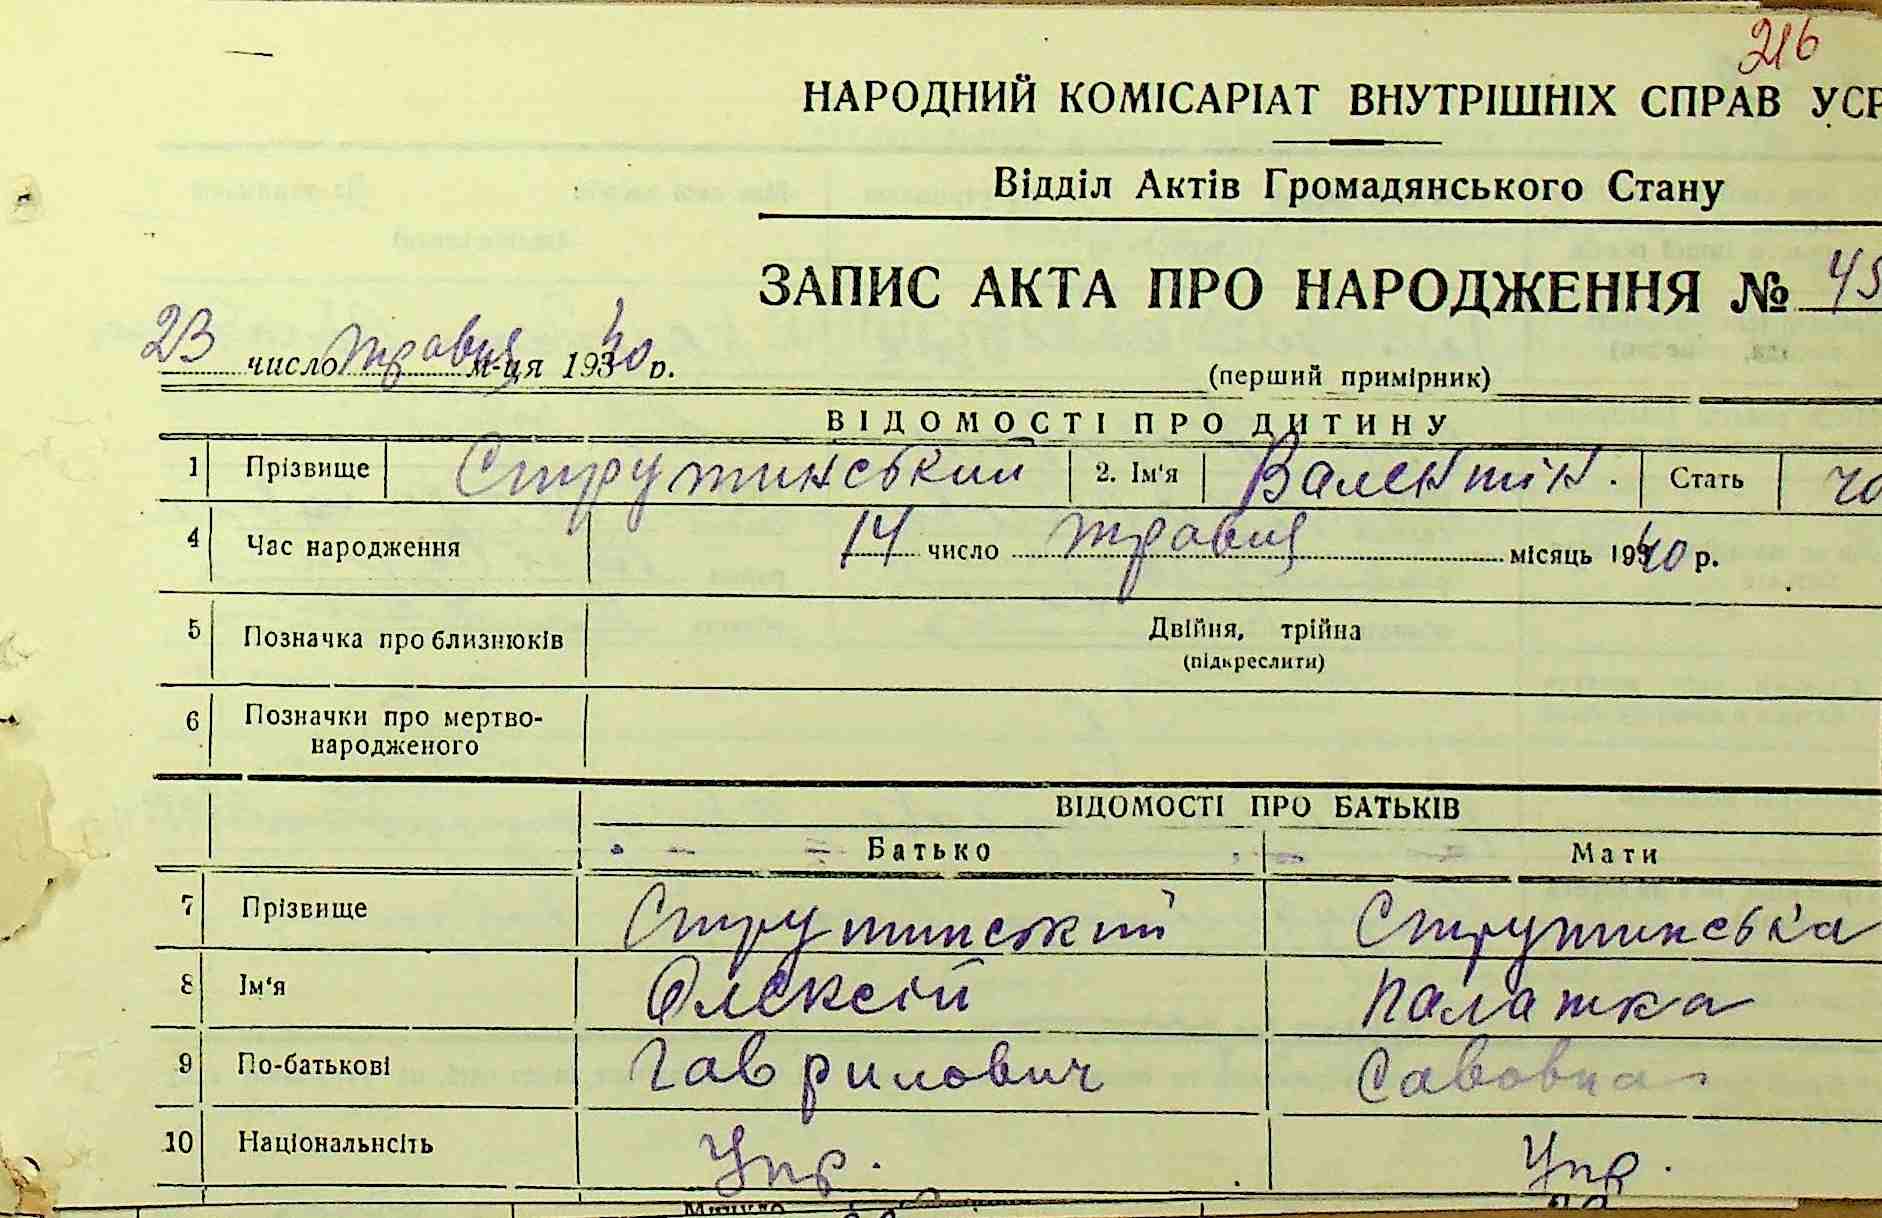 216
НАРОДНИЙ КОМІСАРІАТ ВНУТРІШНІХ СПРАВ УСР
Відділ Актів Громадянського Стану
ЗАПИС АКТА ПРО НАРОДЖЕННЯ № 45
23 число травня м-ця 1940 р.
(перший примірник)
ВІДОМОСТІ ПРО ДИТИНУ
1 Прізвище Струтинський 2. Ім'я Валентін. Стать чо
4 Час народження 14 число травня місяць 1940 р.
5 Позначка про близнюків Двійня, трійна
(підкреслити)
6 Позначки про мертво-
народженого
ВІДОМОСТІ ПРО БАТЬКІВ
Батько Мати
7 Прізвище Струтинський Струтинська
8 Ім'я Олексій Палажка
9 По-батькові Гаврилович Савовна
10 Національнсіть Укр. Укр.